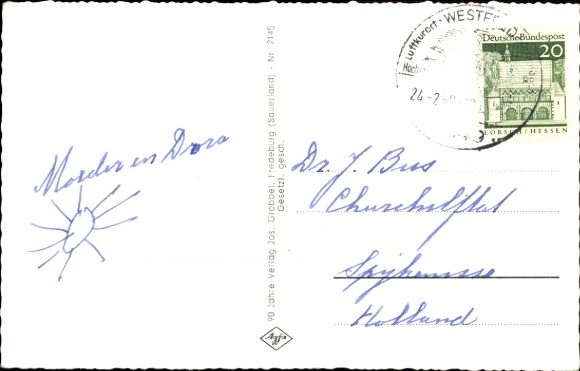 Moeder en Dora
90 Jahre Verlag Jos. Grobbel, Fredeburg (Sauerland) - Nr. 2145
Gesetzl. gesch.
Agfa
Luftkurort · WESTF
24-2
Deutsche Bundespost
20
LORSCH/HESSEN
Dr. J. Bus
Churchilflat
Spijkenisse
Holland